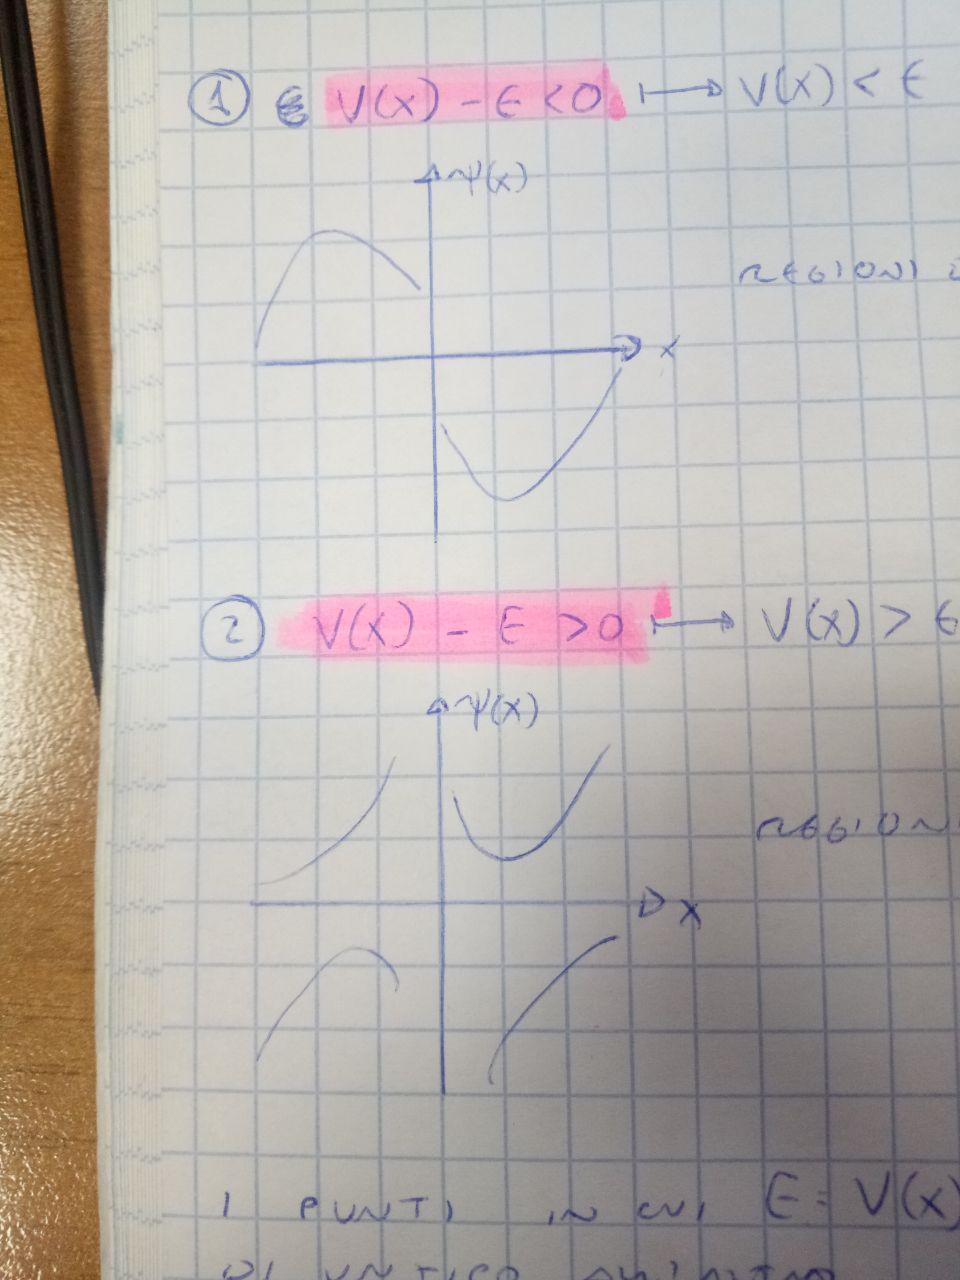 ① V(x) - E < 0 ↦ V(x) < E
ψ(x)
REGIONI
x
② V(x) - E > 0 ↦ V(x) > E
ψ(x)
REGIONI
x
I PUNTI IN CUI E = V(x)